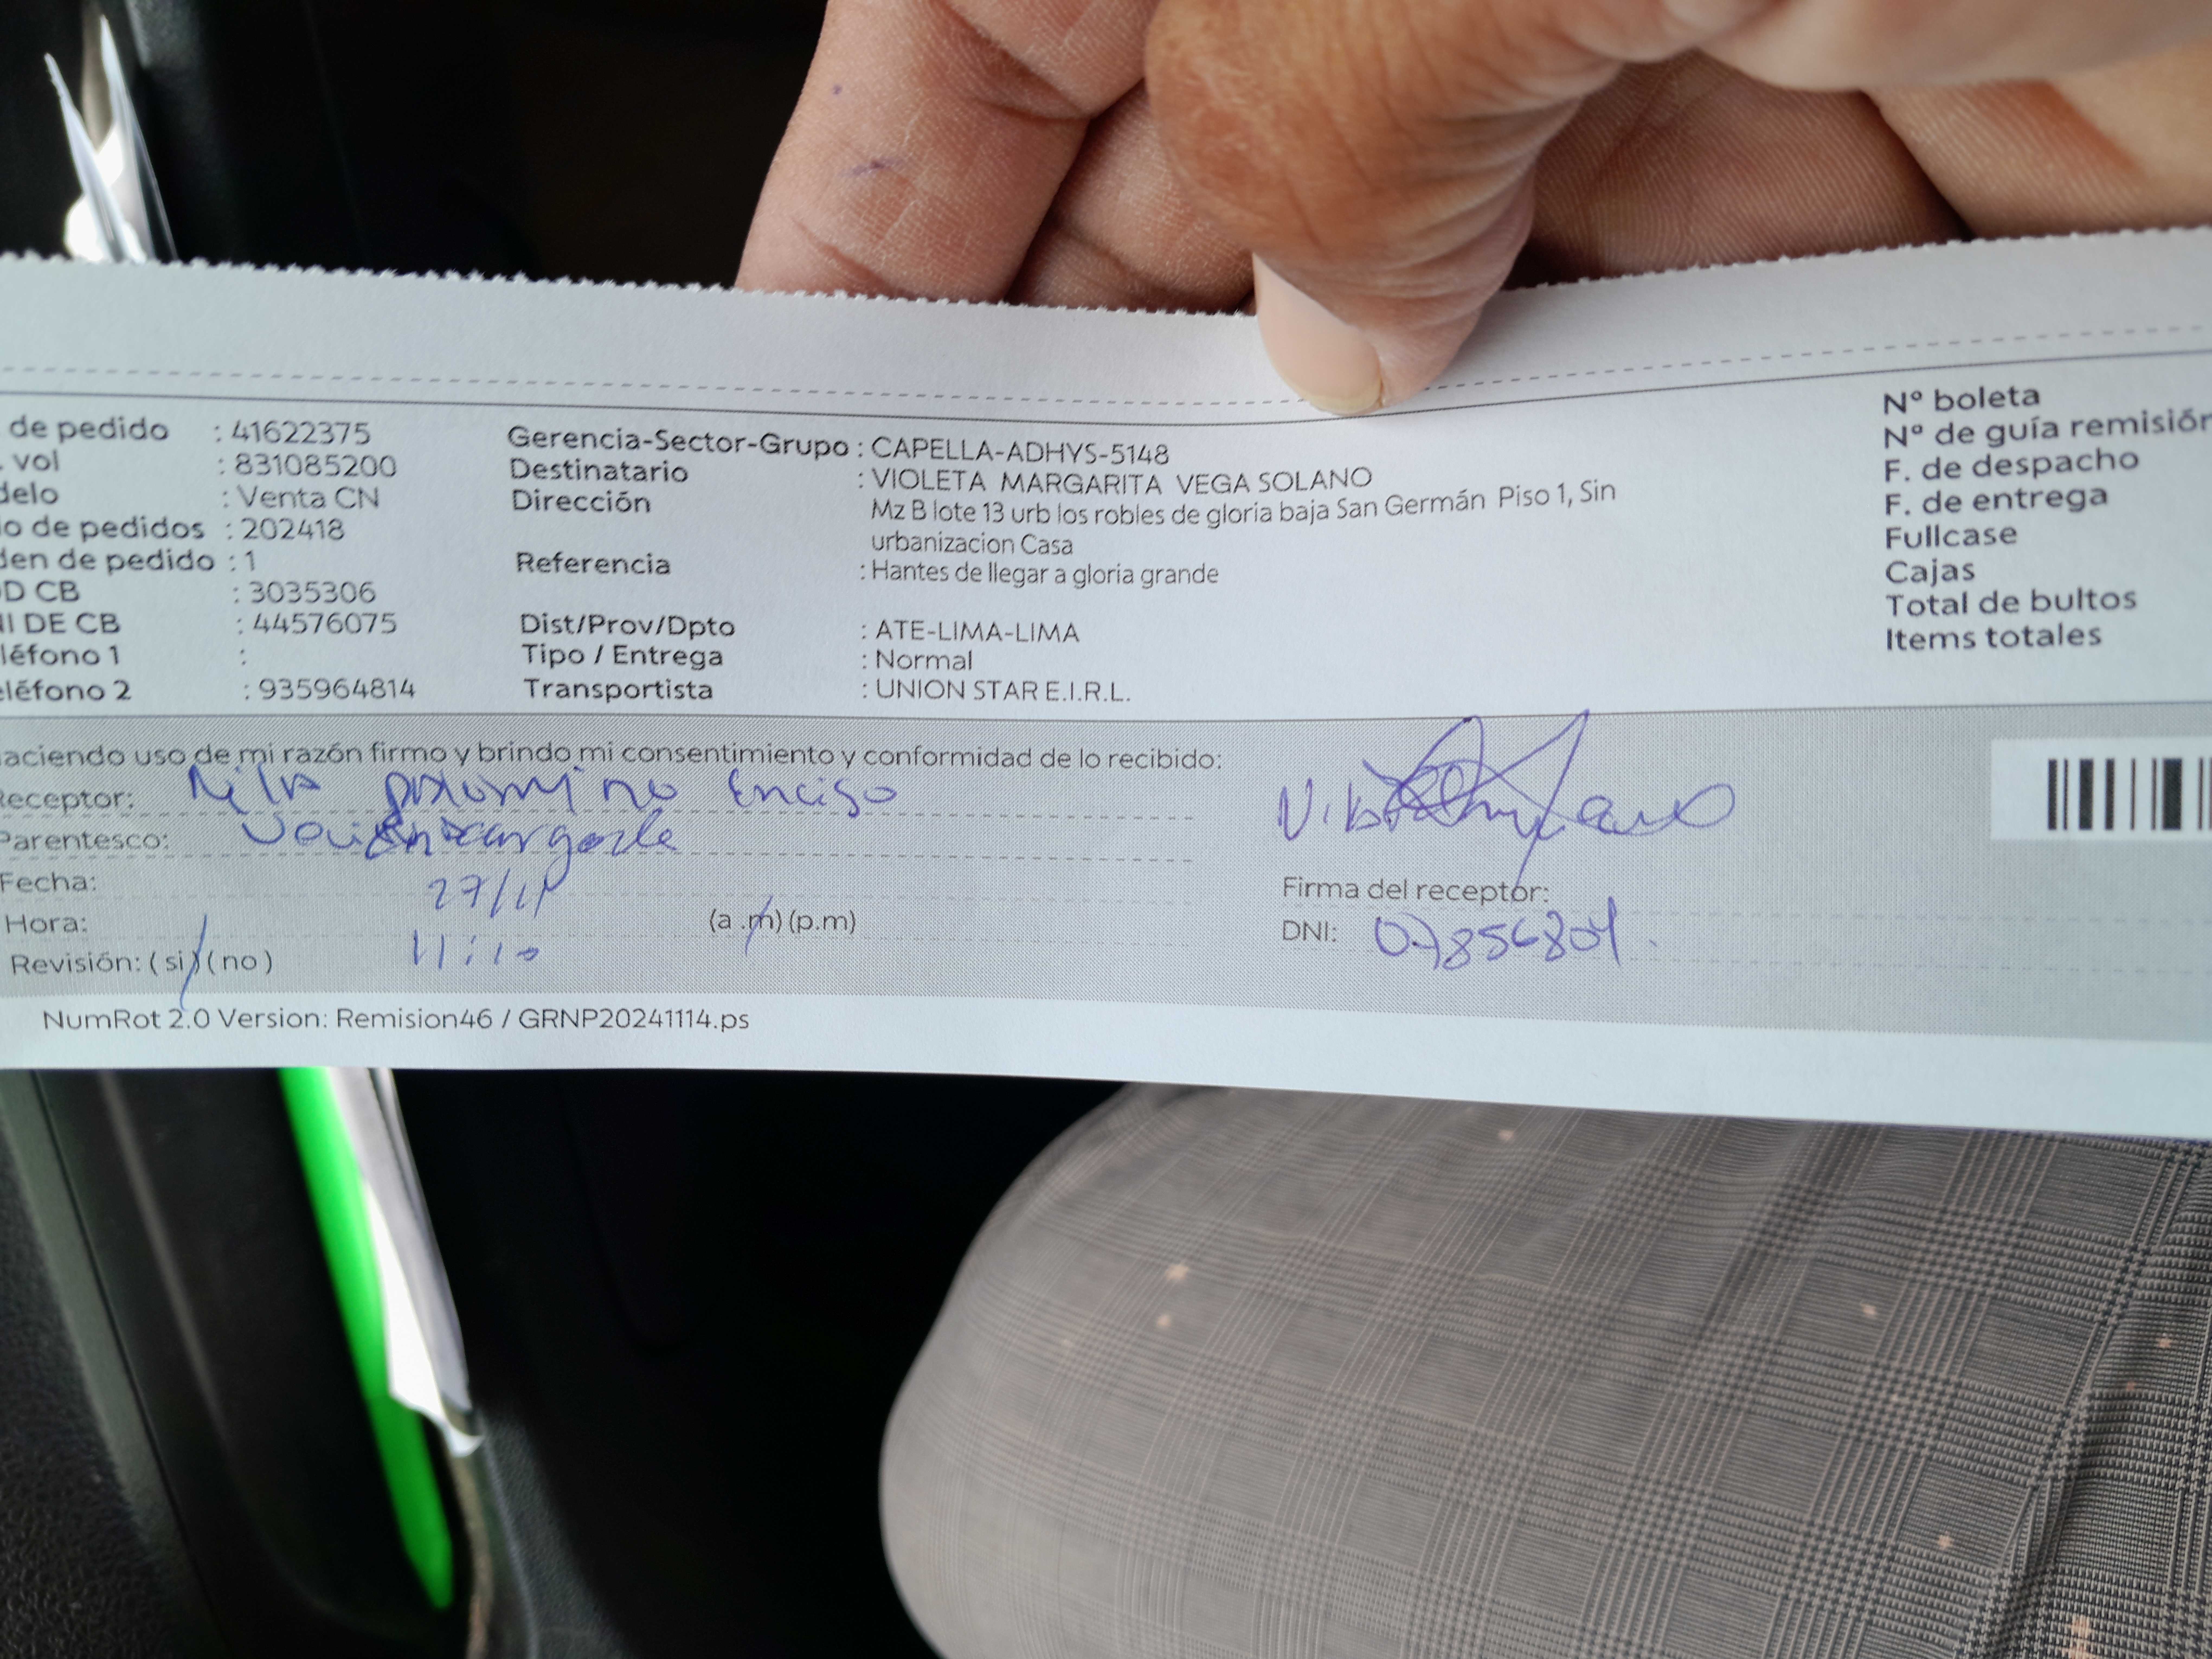 de pedido : 41622375
vol : 831085200
delo : Venta CN
o de pedidos : 202418
den de pedido : 1
D CB : 3035306
NI DE CB : 44576075
léfono 1 :
eléfono 2 : 935964814
Gerencia-Sector-Grupo : CAPELLA-ADHYS-5148
Destinatario : VIOLETA MARGARITA VEGA SOLANO
Dirección Mz B lote 13 urb los robles de gloria baja San Germán Piso 1, Sin
urbanizacion Casa
Referencia : Hantes de llegar a gloria grande
Dist/Prov/Dpto : ATE-LIMA-LIMA
Tipo / Entrega : Normal
Transportista : UNION STAR E.I.R.L.
Nº boleta
Nº de guía remisión
F. de despacho
F. de entrega
Fullcase
Cajas
Total de bultos
Items totales
aciendo uso de mi razón firmo y brindo mi consentimiento y conformidad de lo recibido:
Receptor: Nilv palomino Enciso
Parentesco:
Fecha: 27/11
Hora: 11:10 (a.m) (p.m)
Revisión: ( si ) ( no )
Firma del receptor:
DNI: 07856804.
NumRot 2.0 Version: Remision46 / GRNP20241114.ps